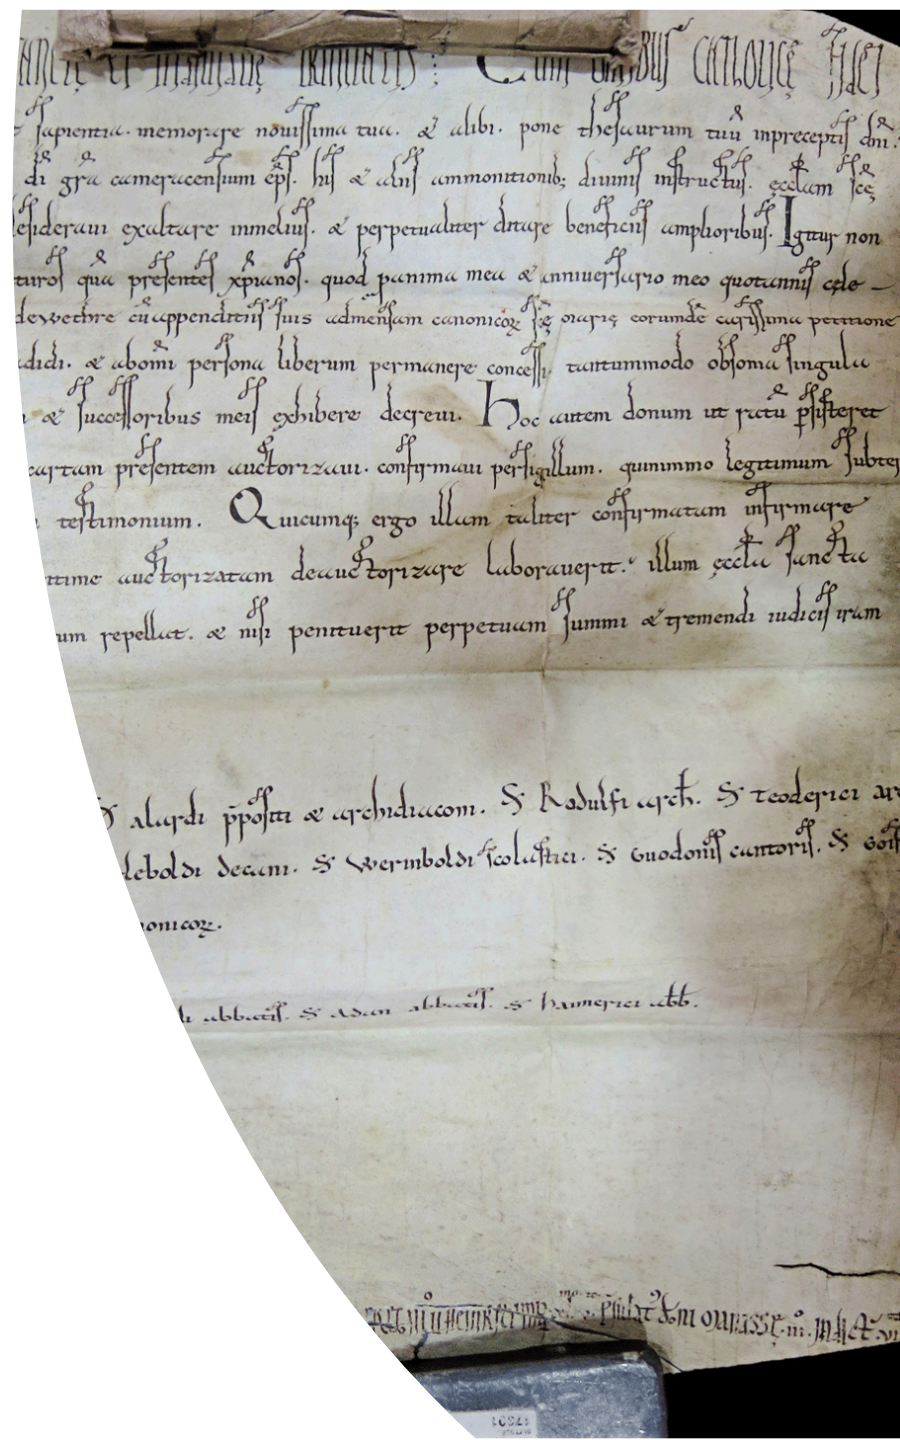 ET INDIVIDUE TRINITATIS : CUM OMNIBUS CATHOLICE FIDEI
sapientia. memorare nouissima tua. & alibi. pone thesaurum tuū inpreceptis dn̄i.
dī gr̄a cameracensium ep̄s. his & aliis ammonitionib; diuinis instructus. ęccl̄am sc̄ę
desideraui exaltare inmelius. & perpetualiter ditare beneficiis amplioribus. Igitur non
turos quā presentes xp̄ianos. quod panima mea & anniuersario meo quotannis cele
dewethre cū appenditiis suis admensam canonicoꝝ sc̄ę marię eorumdē carissima petitione
didi. & abomī persona liberum permanere concessi. tantummodo obsonia singula
& successoribus meis exhibere decreui. Hoc autem donum ut ratū psisteret
cartam presentem auctorizaui. confirmaui persigillum. quinimmo legitimum subter
testimonium. Quicumq; ergo illam taliter confirmatam infirmare
ittime auctorizatam deauctorizare laborauerit. illum ęccl̄a sancta
um repellat. & nisi penituerit perpetuam summi & tremendi iudicis iram
S' alardi p̄positi & archidiaconi. S' Radulfi arch̄. S' teoderici ar
leboldi decani. S' werinboldi scolastici. S' Guodonis cantoris. S'
nonicoꝝ.
abbatis. S' adam abbatis. S' haimerici abb̄.